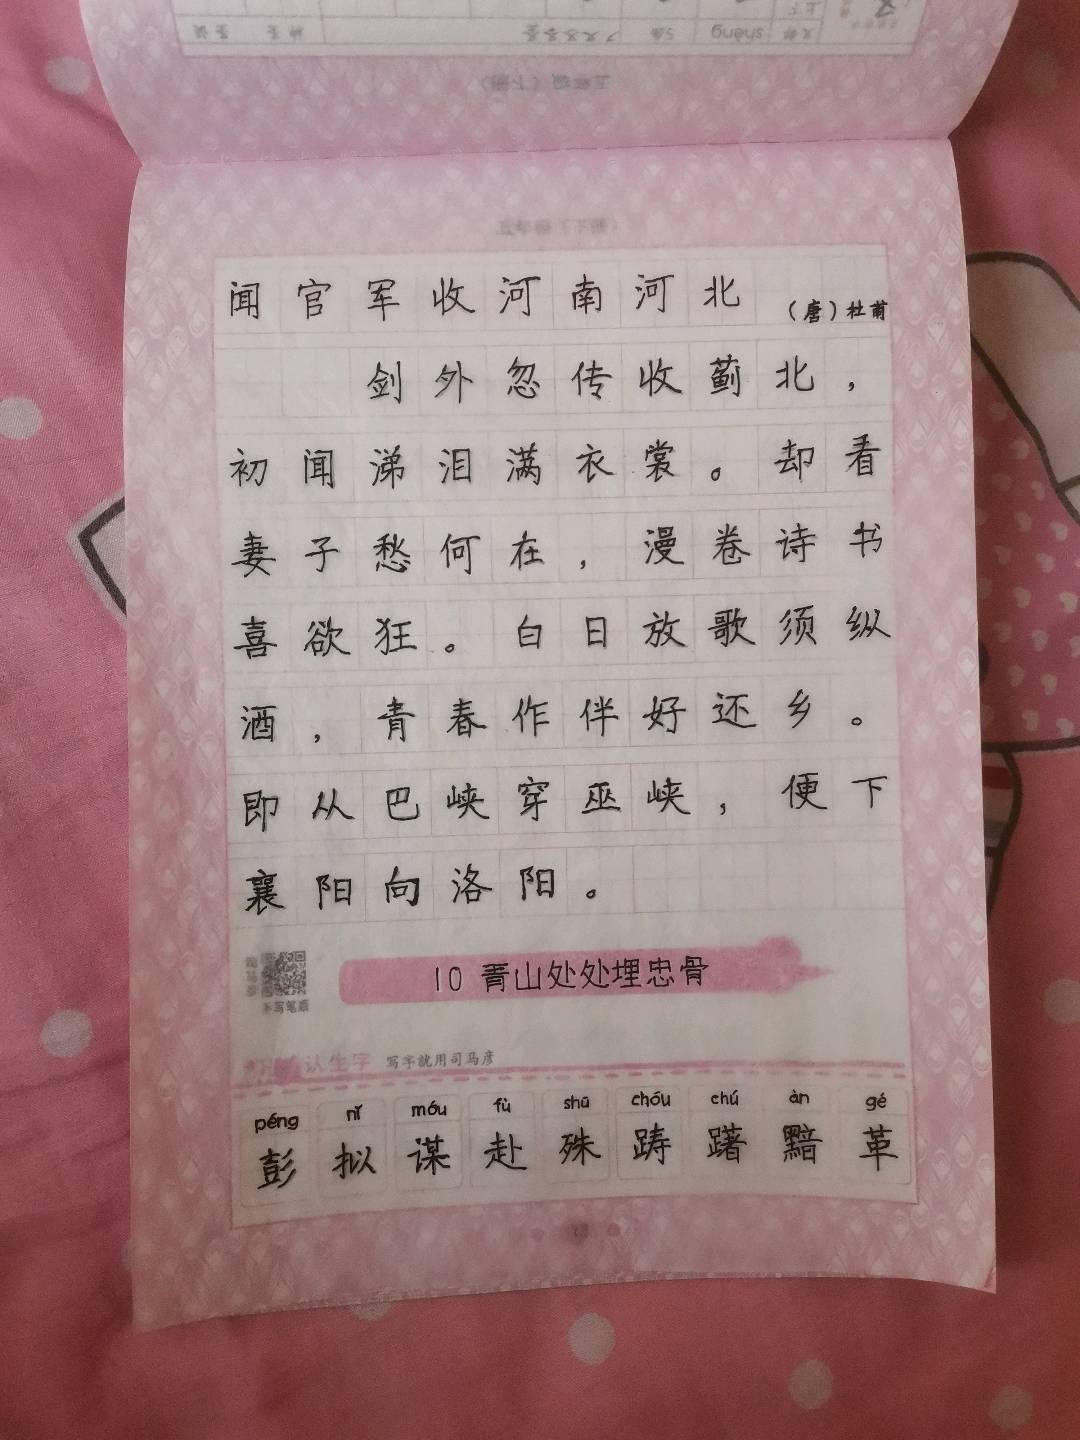 闻官军收河南河北 （唐）杜甫
剑外忽传收蓟北，
初闻涕泪满衣裳。却看
妻子愁何在，漫卷诗书
喜欲狂。白日放歌须纵
酒，青春作伴好还乡。
即从巴峡穿巫峡，便下
襄阳向洛阳。
10 青山处处埋忠骨
认生字 写字就用司马彦
péng nǐ móu fù shū chóu chú àn gé
彭 拟 谋 赴 殊 踌 躇 黯 革